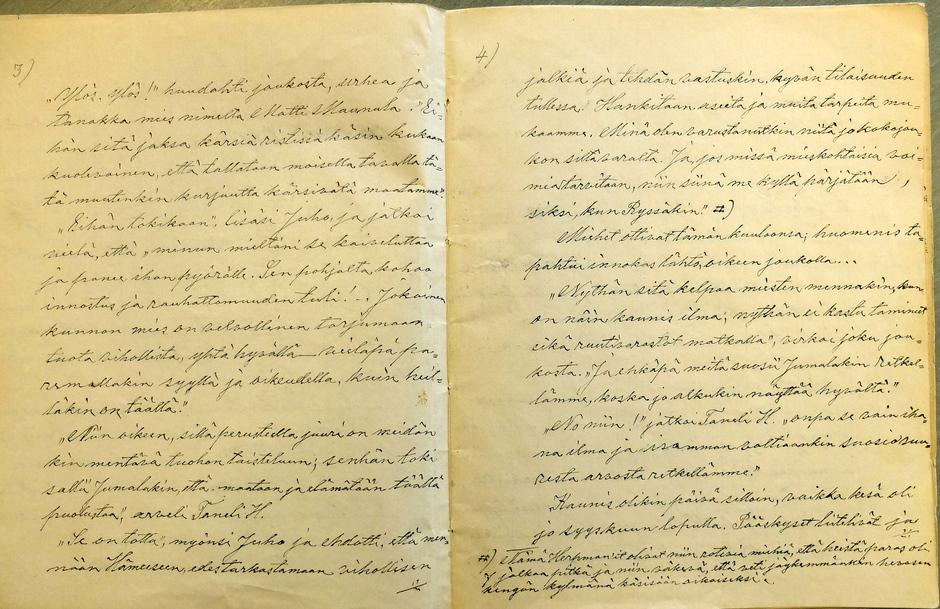 3)
„Ylös, ylös!" huudahti joukosta, urhea ja
tanakka mies nimeltä Matti Maunula. „Ei-
hän sitä jaksa kärsiä ristissä käsin kukaan
kuolevainen, että tallataan moisella tavalla tä-
tä muutenkin kurjuutta kärsivätä maatamme."
„Eihän tokikaan", lisäsi Juho, ja jatkoi
vielä, että „minun mieltäni se kaiveluttaa
ja panee ihan pyörälle. Sen pohjalta, kohoo
innostus ja rauhattomuuden tuli! – . Jokainen
kunnon mies on velvollinen torjumaan
tuota vihollista, yhtä hyvällä – veiläpä pa-
remmallakin syyllä ja oikeudella, kuin heil-
läkin on täällä."
„Niin oikein, sillä perusteella juuri on meidän
kin mentävä tuohon taisteluun; senhän toki
sallii Jumalakin, että maataan ja elämätään täällä
puolustaa", arveli Taneli H.
„Se on totta", myönsi Juho ja ehdotti, että men-
nään Hämeeseen, edestarkastamaan vihollisen
4)
jälkiä ja tehdän vastuskin, hyvän tilaisuuden
tullessa. Hankitaan aseita ja muita tarpeita mu-
kaamme. Minä olen varustanutkin niitä jo koko jou-
kon siltä varalta. Ja, jos missä mieskohtaisia voi-
mia tarvitaan, niin siinä me kyllä pärjätään,
siksi, kun Ryssäkin." #)
Miehet ottivat tämän kuuloonsa; huomenis ta-
pahtui innokas lähtö, oikeen joukolla...
„Nythän sitä kelpaa miesten mennäkin, kun
on näin kaunis ilma; nythän ei kastu tamineet
eikä ruutivarastot matkalla", virkoi joku jou-
kosta. „Ja ehkäpä meitä suosii Jumalakin retkel-
lämme, koska jo alkukin näyttää hyvältä."
„No niin!" jatkoi Taneli H. „onpa se vain iha-
na ilma ja isamman valtiaankin suosio suu-
resta arvosta retkellämme."
Kaunis olikin päivä silloin, vaikka kesä oli
jo syyskuun lopulla. Pääskyset liitelivät ja
#) Nämä Herkmanit olivat niin roteria miehiä, että heistä paras oli
7 jalkaa pitkä ja niin väkevä, että veti jäykemmänkin hevosen
kengän kylmänä käsisään oikaiseksi.